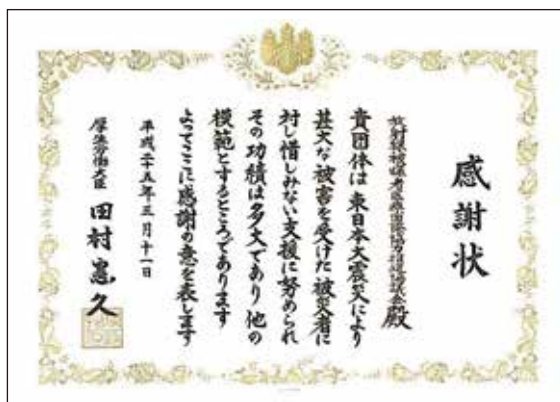 感謝状
放射線被曝者医療国際協力推進協議会殿
貴団体は東日本大震災により
甚大な被害を受けた被災者に
対し惜しみない支援に努められ
その功績は多大であり他の
模範とするところであります
よってここに感謝の意を表します
平成二十五年三月十一日
厚生労働大臣 田村憲久